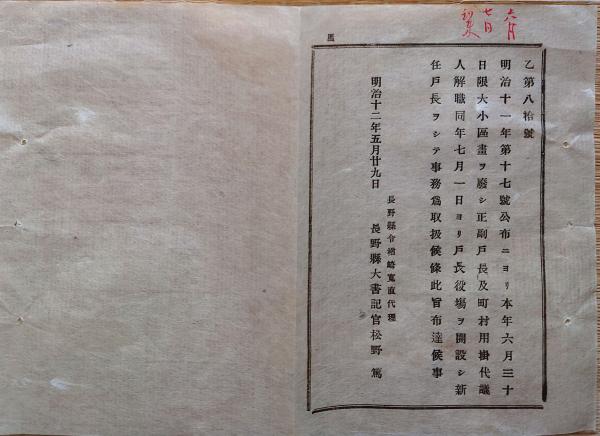 六月
七日
乙第八拾號
明治十一年第十七號公布ニヨリ本年六月三十
日限大小區畫ヲ廢シ正副戸長及町村用掛代議
人解職同年七月一日ヨリ戸長役場ヲ開設シ新
任戸長ヲシテ事務爲取扱候條此旨布達候事
明治十二年五月廿九日
長野縣令楢崎寛直代理
長野縣大書記官松野篤